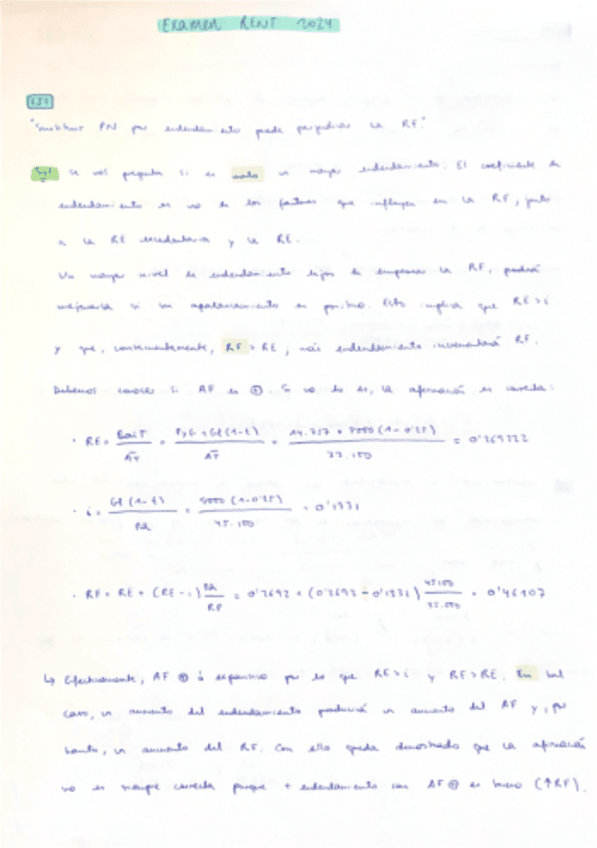 Examen RENT 2024
"Sustituir PN por endeudamiento puede perjudicar la RF."
se nos pregunta si es malo un mayor endeudamiento. El coeficiente de
endeudamiento es uno de los factores que influyen en la RF, junto
a la RE y la RE.
Un mayor nivel de endeudamiento lejos de empeorar la RF, podrá
mejorarla si su apalancamiento es positivo. Esto implica que RE > i
y que, consecuentemente, RF > RE; más endeudamiento incrementará RF.
Debemos conocer si AF es ⊕. Si no lo es, la afirmación es correcta:
· RE = BaiT / AT = PyG + Gf (1-t) / AT = (1-0'25) / = 0'269222
· i = Gf (1-t) / PA = (1-0'25) / 45.100 = 0'1331
· RF = RE + (RE - i) PA / RP = 0'2692 + (0'2692 - 0'1331) 45100 / = 0'46107
↳ Efectivamente, AF ⊕ ó expansivo por lo que RE > i y RF > RE. En tal
caso, un aumento del endeudamiento producirá un aumento del AF y, por
tanto, un aumento del RF. Con ello queda demostrado que la afirmación
no es siempre correcta porque + endeudamiento con AF ⊕ es bueno (↑RF).